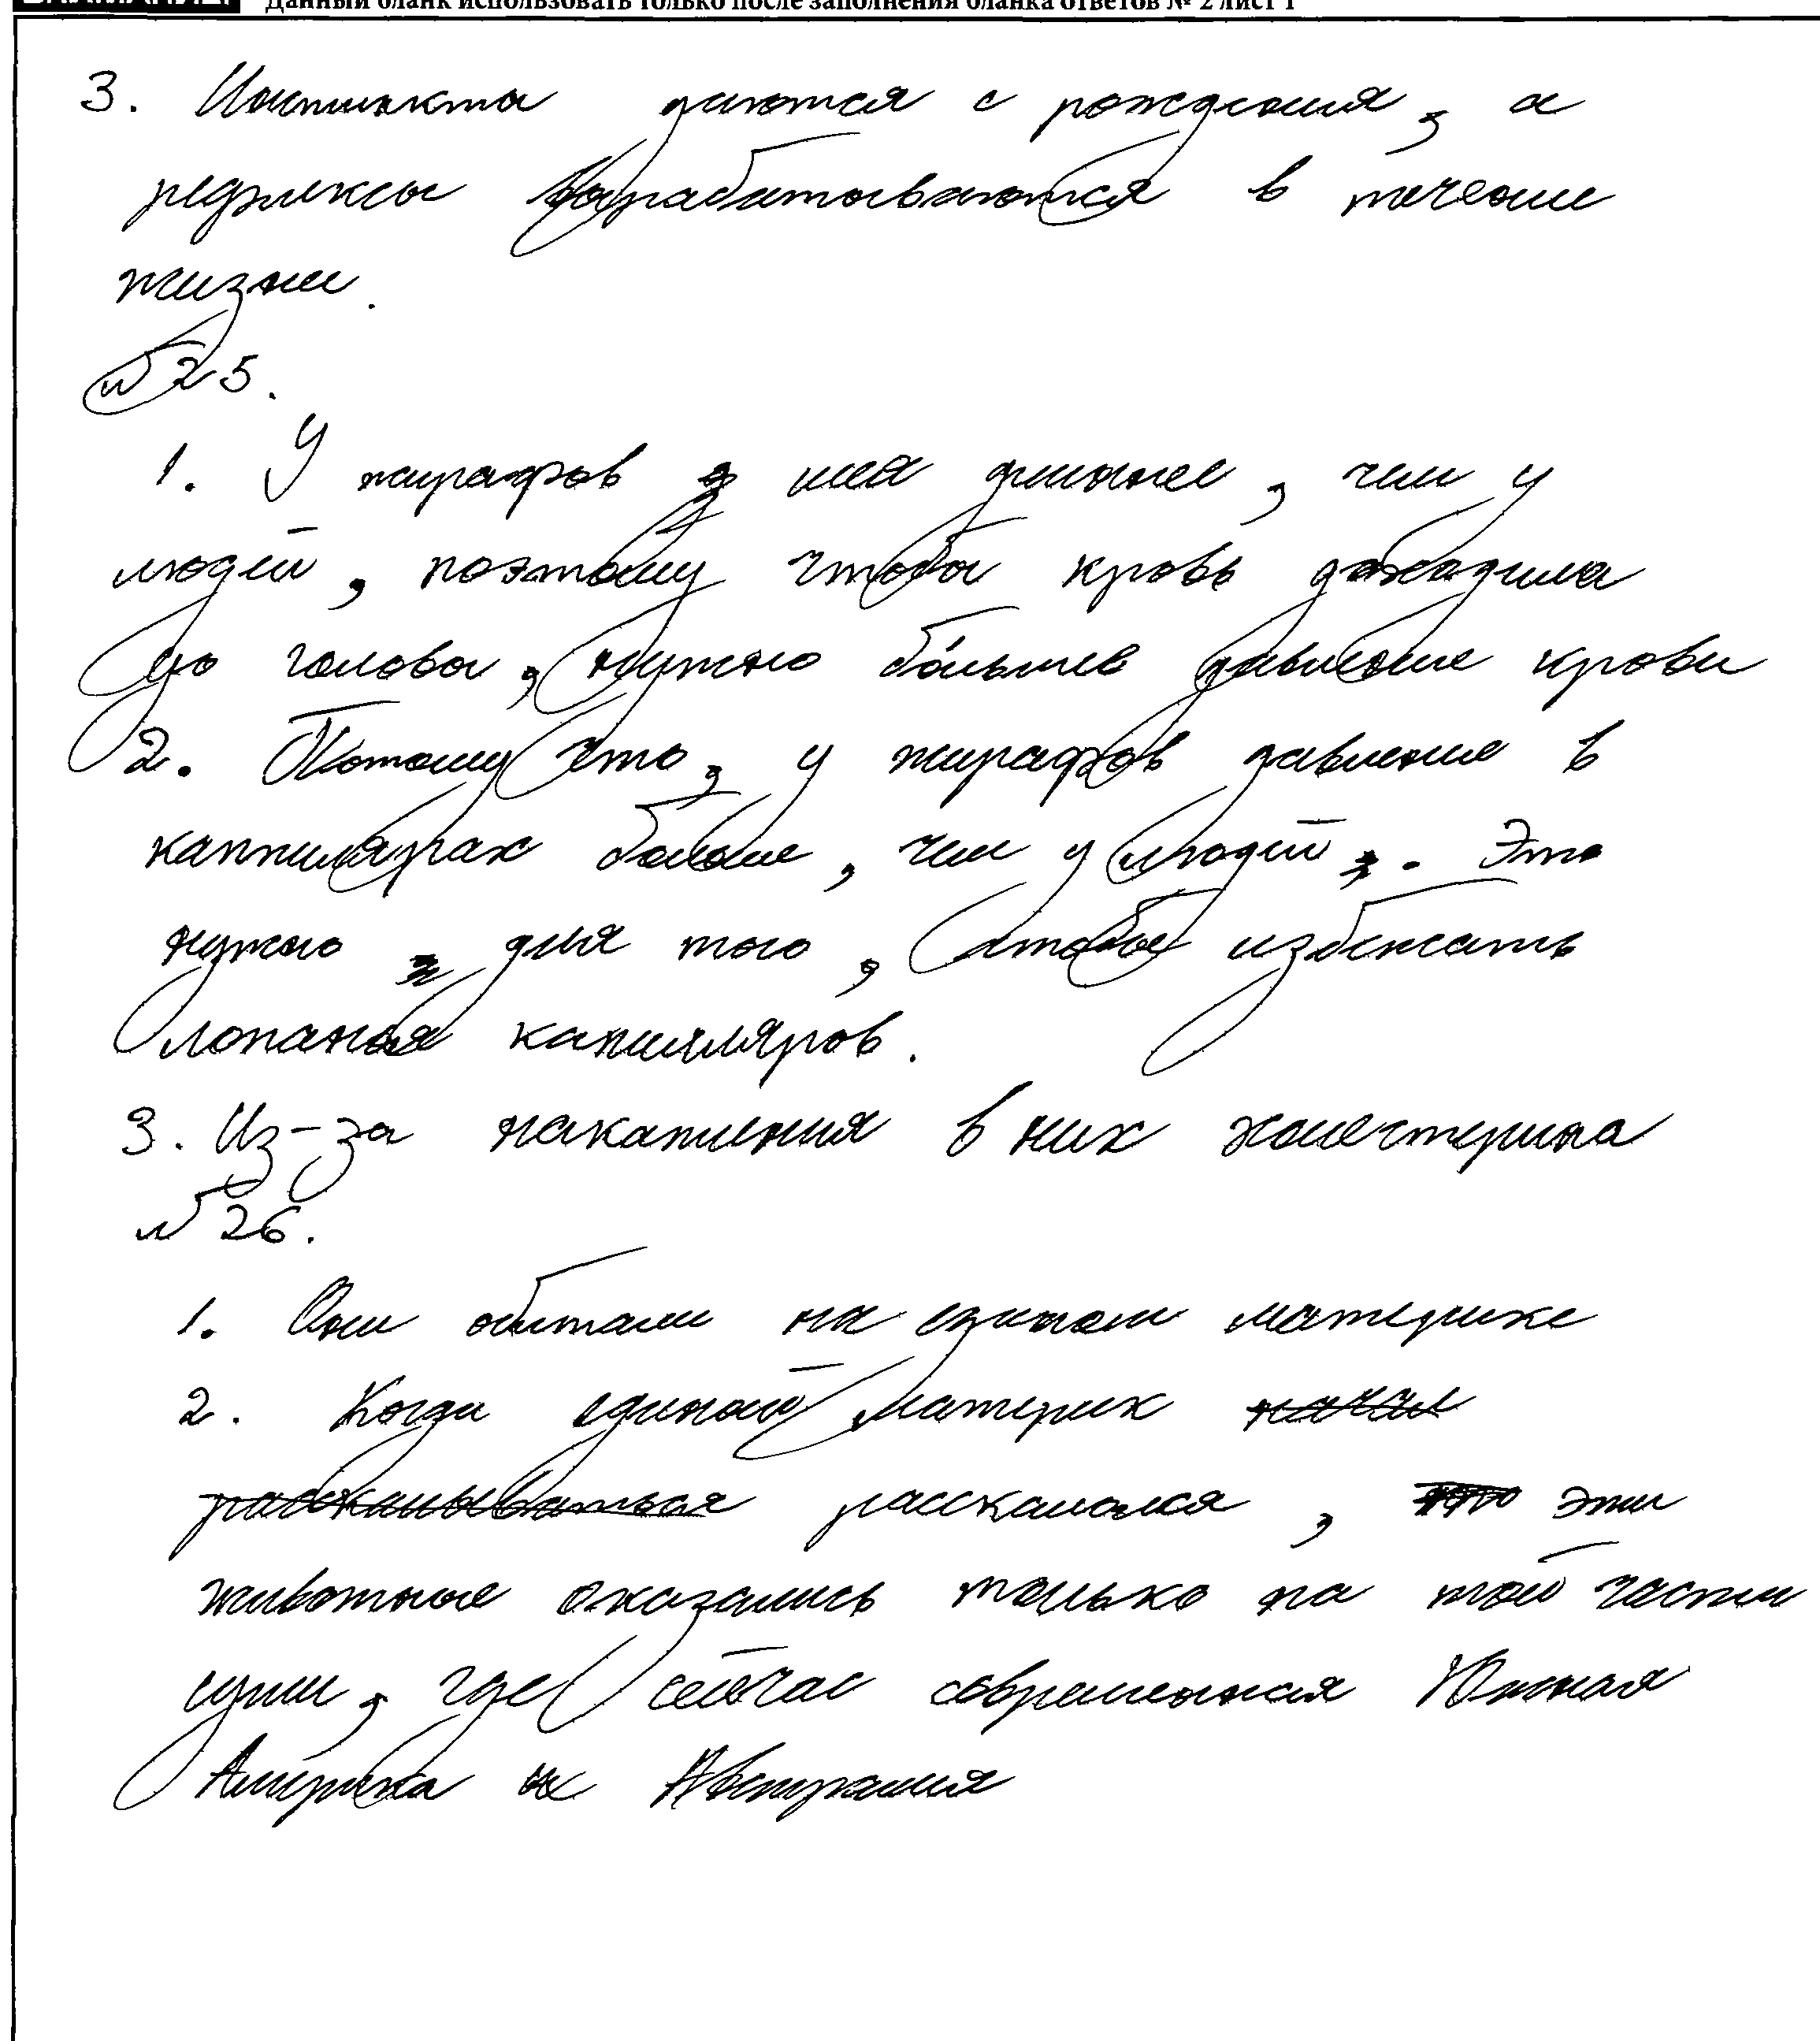 Данный бланк использовать только после заполнения бланка ответов № 2 лист 1
3. Инстинкты даются с рождения, а
рефлексы вырабатываются в течение
жизни.
№25.
1. У жирафов шея длиннее, чем у
людей, поэтому чтобы кровь доходила
до головы, нужно большее давление крови
2. Потому что, у жирафов давление в
каппилярах больше, чем у людей. Это
нужно для того, чтобы избежать
лопанья капилляров.
3. Из-за накапления в них холестерина
№26.
1. Они обитали на едином материке
2. Когда единый материк начал
раскалываться раскалолся, эти
животные оказались только на той части
суши, где сейчас современная Южная
Америка и Австралия